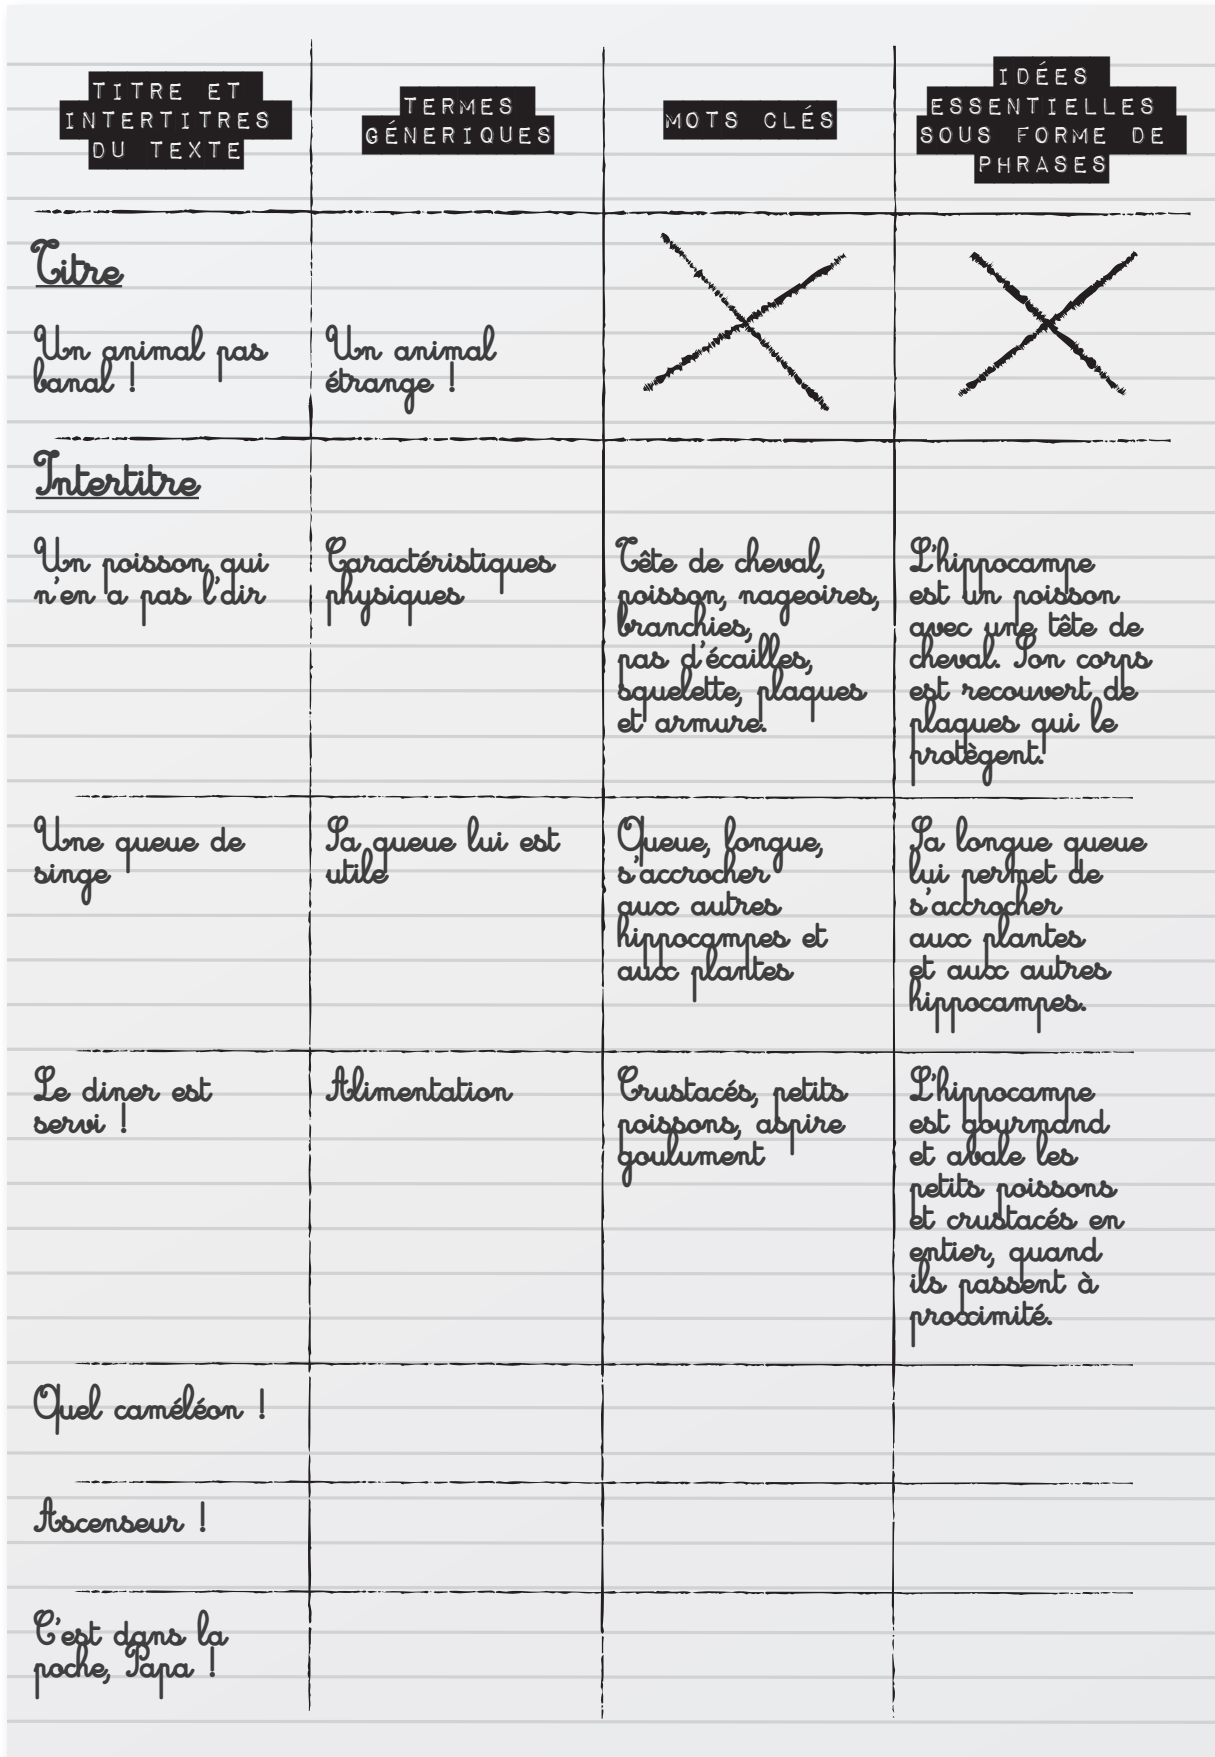 TITRE ET
INTERTITRES
DU TEXTE
TERMES
GÉNERIQUES
MOTS CLÉS
IDÉES
ESSENTIELLES
SOUS FORME DE
PHRASES
Titre
Un animal pas
banal !
Un animal
étrange !
Intertitre
Un poisson qui
n'en a pas l'air
Caractéristiques
physiques
Tête de cheval,
poisson, nageoires,
branchies,
pas d'écailles,
squelette, plaques
et armure.
L'hippocampe
est un poisson
avec une tête de
cheval. Son corps
est recouvert de
plaques qui le
protègent.
Une queue de
singe
Sa queue lui est
utile
Queue, longue,
s'accrocher
aux autres
hippocampes et
aux plantes
Sa longue queue
lui permet de
s'accrocher
aux plantes
et aux autres
hippocampes.
Le diner est
servi !
Alimentation
Crustacés, petits
poissons, aspire
goulument
L'hippocampe
est gourmand
et avale les
petits poissons
et crustacés en
entier, quand
ils passent à
proximité.
Quel caméléon !
Ascenseur !
C'est dans la
poche, Papa !